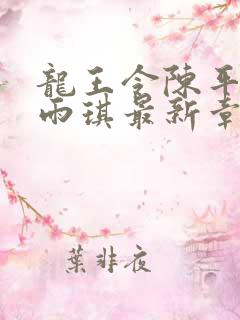 龍王令陳平
雨琪最新章
葉非夜